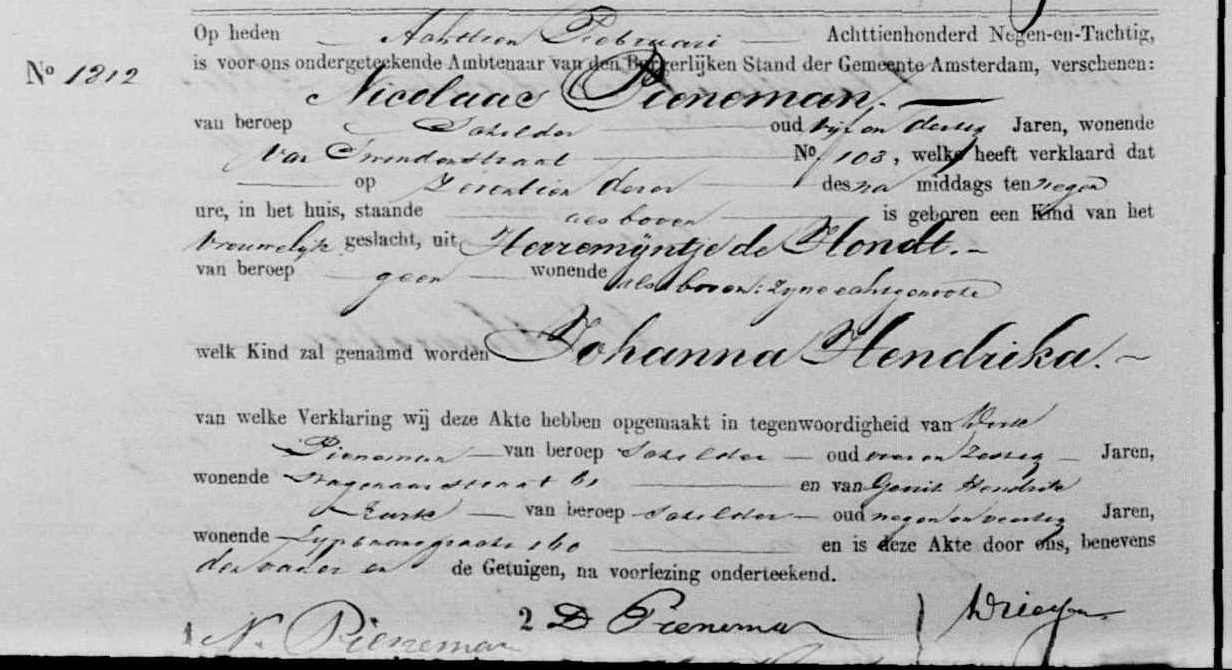 Op heden Achttien Februari Achttienhonderd Negen-en-Tachtig,
No 1212 is voor ons ondergeteekende Ambtenaar van den Burgerlijken Stand der Gemeente Amsterdam, verschenen:
Nicolaas Pieneman.
van beroep Schilder oud vijf en dertig Jaren, wonende
Van Swindenstraat No. 103, welke heeft verklaard dat
op Zeventien dezer des na middags ten negen
ure, in het huis, staande als boven is geboren een Kind van het
Vrouwelijk geslacht, uit Herremijntje de Hondt.
van beroep geen wonende als boven: zyne echtgenoote
welk Kind zal genaamd worden Johanna Hendrika.
van welke Verklaring wij deze Akte hebben opgemaakt in tegenwoordigheid van
Pieneman van beroep Schilder oud en Zestig Jaren,
wonende en van Gerrit Hendrik
van beroep Schilder oud negen en veertig Jaren,
wonende Lijnbaansgracht en is deze Akte door ons, benevens
den vader en de Getuigen, na voorlezing onderteekend.
1 N. Pieneman 2 D Pieneman